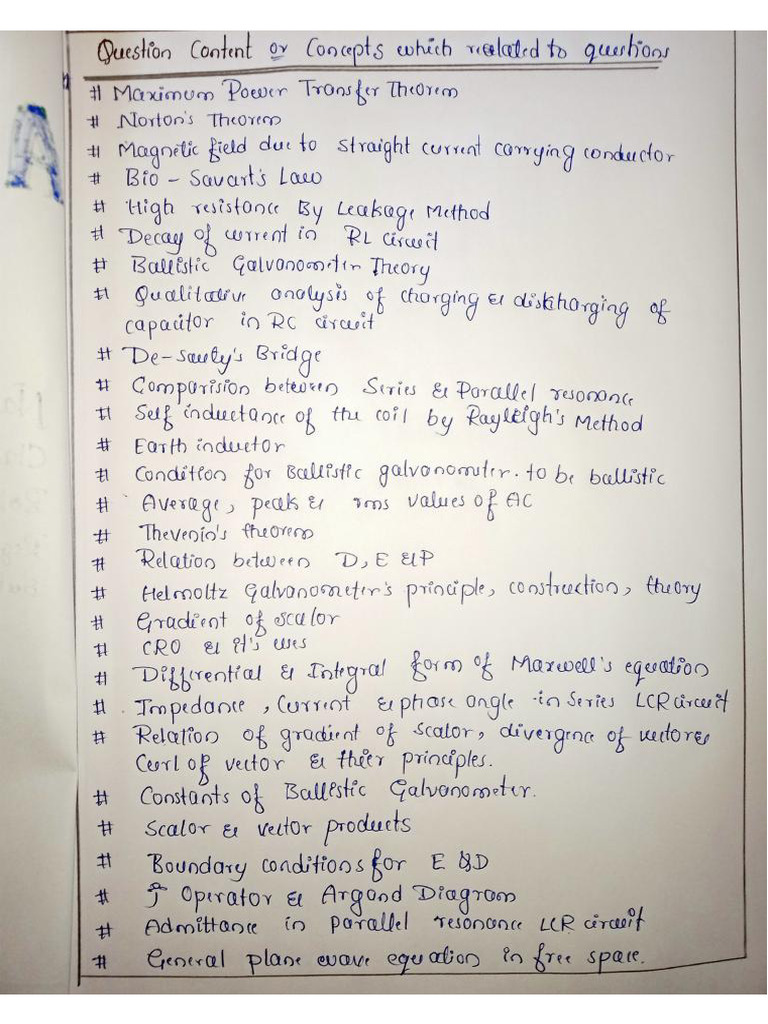 Question Content or Concepts which realated to questions
# Maximum Power Transfer Theorem
# Norton's Theorem
# Magnetic field due to straight current carrying conductor
# Bio - Savart's Law
# High resistance By Leakage Method
# Decay of current in RL circuit
# Ballistic Galvanometer Theory
# Qualitative analysis of charging & discharging of
capacitor in RC circuit
# De-sauty's Bridge
# Comparision between Series & Parallel resonance
# Self inductance of the coil by Rayleigh's Method
# Earth inductor
# Condition for Ballistic galvanometer. to be ballistic
# Average, peak & rms values of AC
# Thevenin's theorem
# Relation between D, E & P
# Helmoltz Galvanometer's principle, construction, theory
# Gradient of scalar
# CRO & it's uses
# Differential & Integral form of Maxwell's equation
# Impedance, Current & phase angle in Series LCR circuit
# Relation of gradient of scalar, divergence of vector &
Curl of vector & their principles.
# Constants of Ballistic Galvanometer.
# Scalar & vector products
# Boundary conditions for E & D
# j Operator & Argand Diagram
# Admittance in parallel resonance LCR circuit
# General plane wave equation in free space.
A